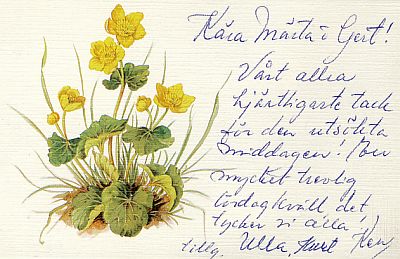 Kära Märta & Gert!
Vårt allra
hjärtligaste tack
för den utsökta
middagen! En
mycket trevlig
lördagkväll, det
tycker vi alla!
Ulla, Kurt